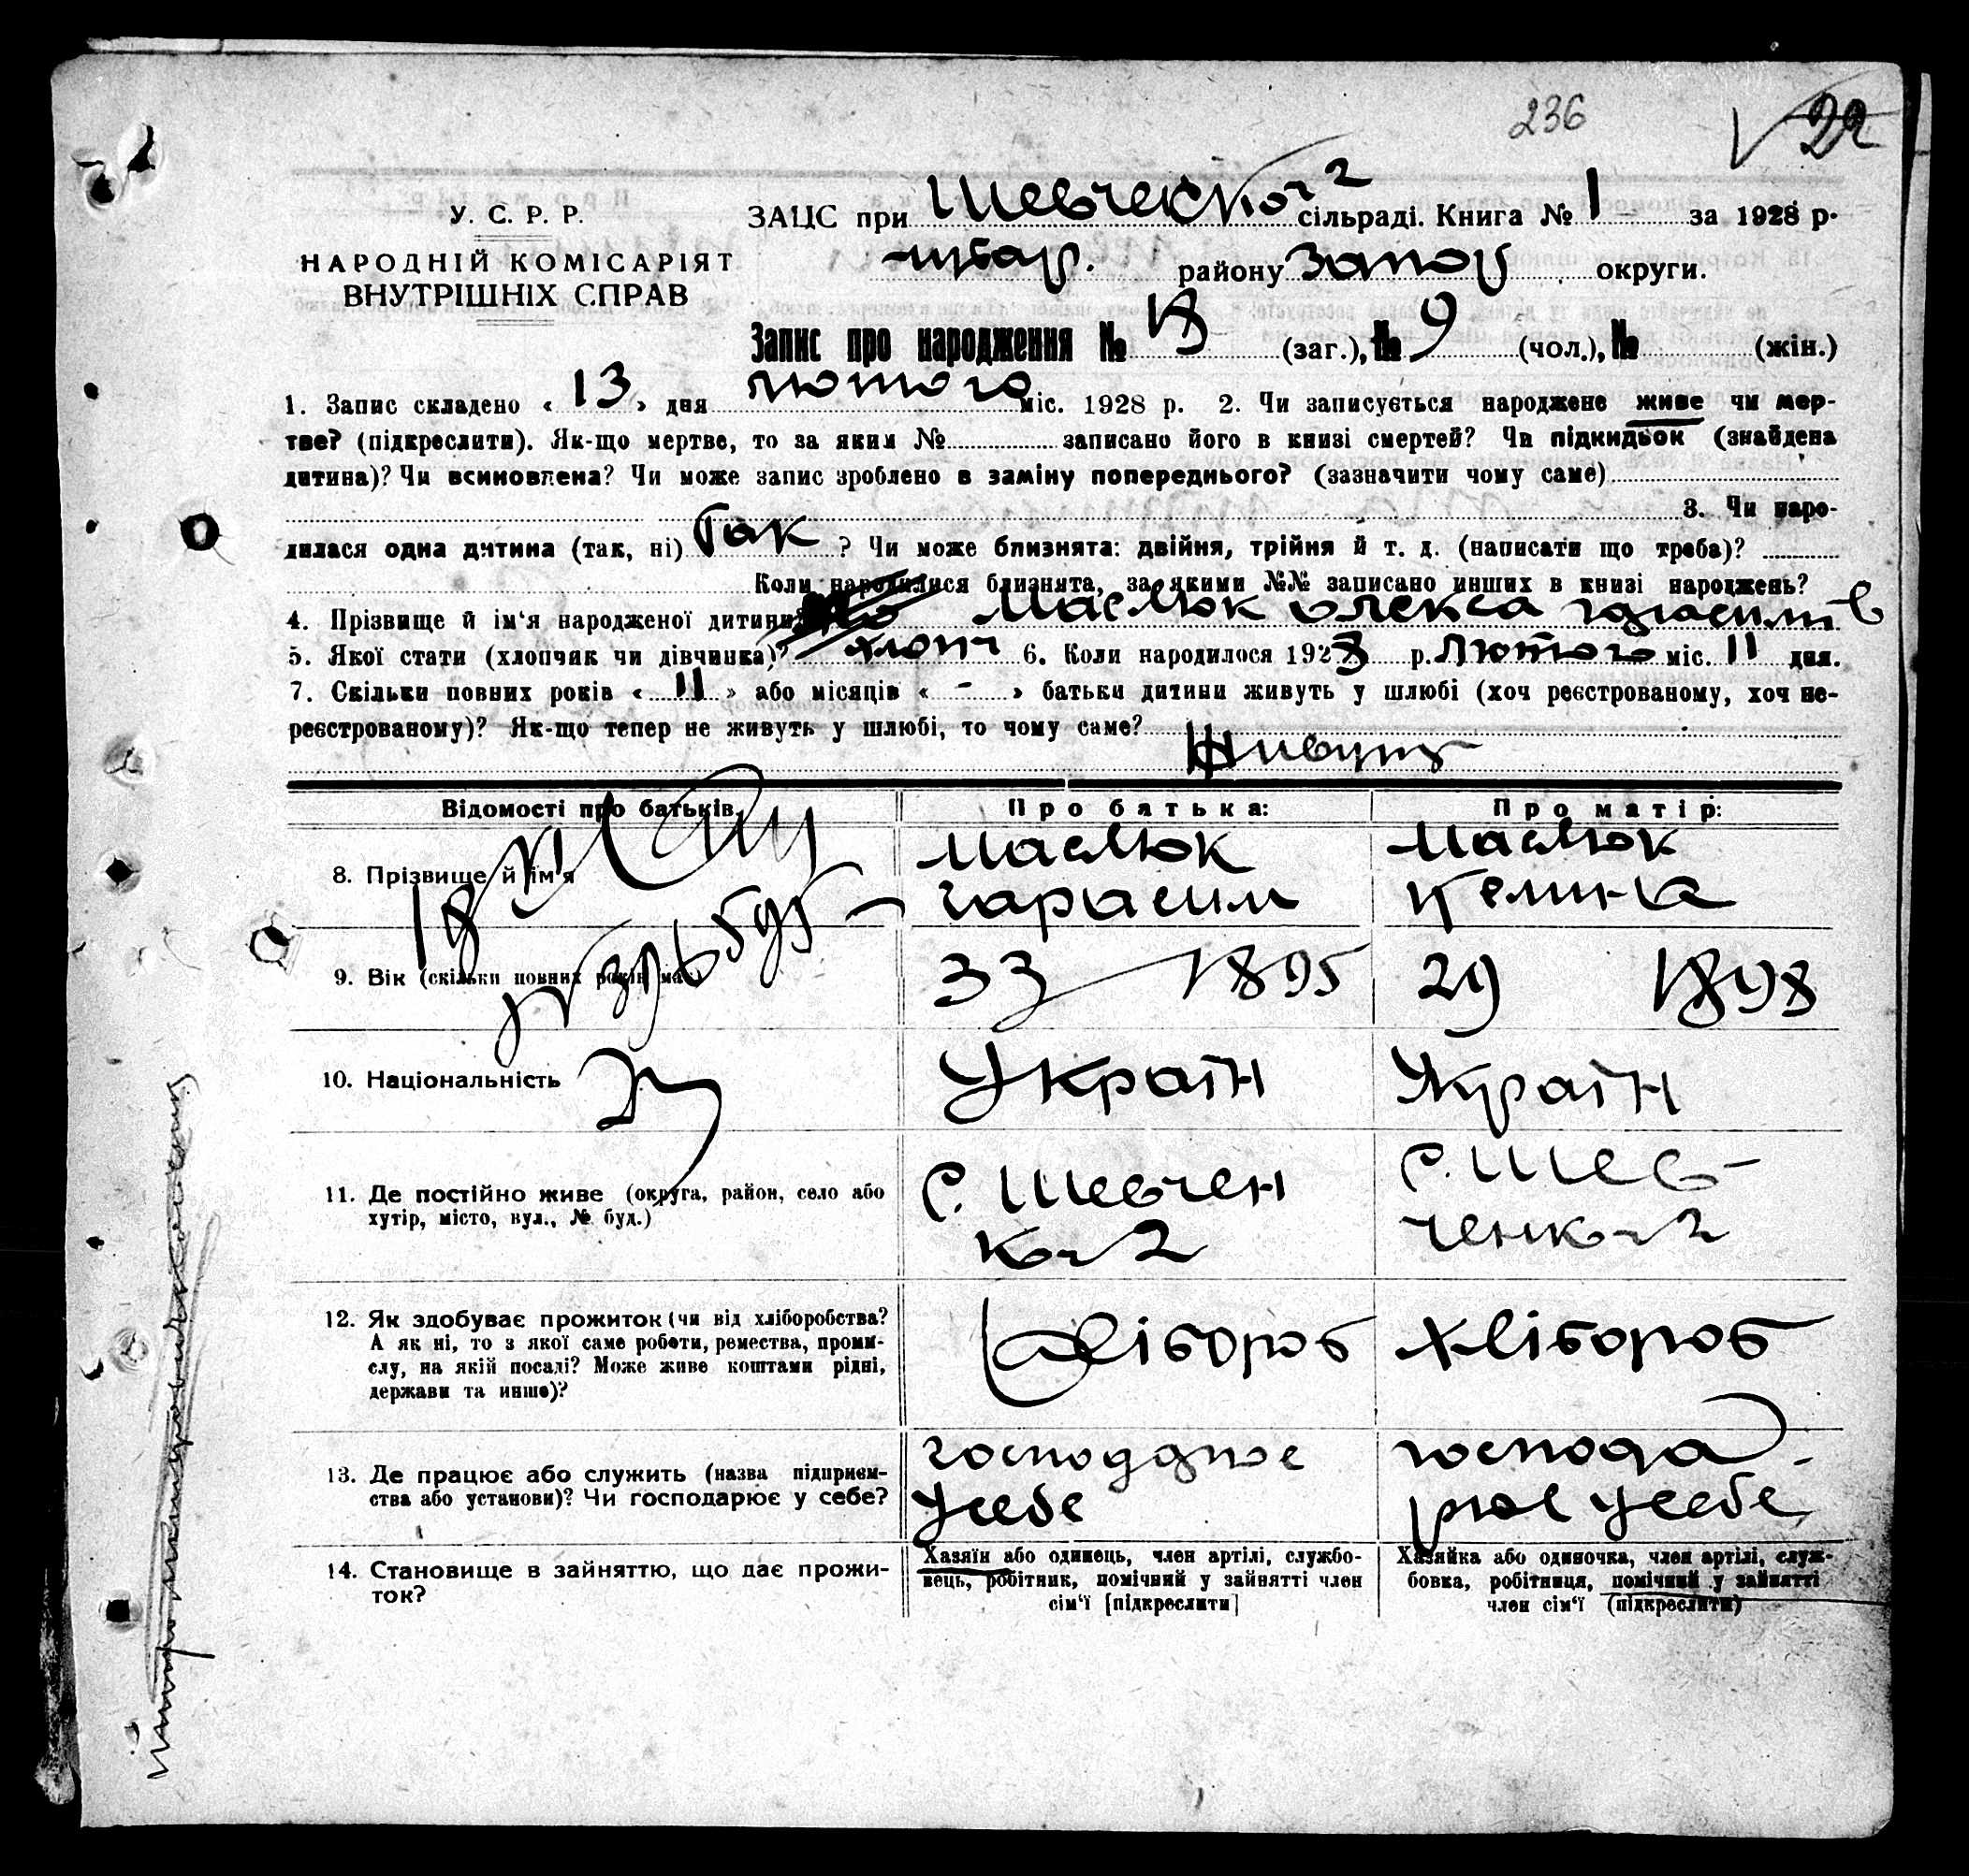 236 22
У. С. Р. Р.
НАРОДНІЙ КОМІСАРІЯТ
ВНУТРІШНІХ СПРАВ
ЗАЦС при сільраді. Книга № 1 за 1928 р.
району Запор округи.
Запис про народження № 13 (заг.), № 9 (чол.), № (жін.)
1. Запис складено « 13 » дня лютого міс. 1928 р. 2. Чи записується народжене живе чи мер-
тве? (підкреслити). Як-що мертве, то за яким № записано його в книзі смертей? Чи підкидьок (знайдена
дитина)? Чи всиновлена? Чи може запис зроблено в заміну попереднього? (зазначити чому саме)
3. Чи наро-
дилася одна дитина (так, ні) так ? Чи може близнята: двійня, трійня й т. д. (написати що треба)?
Коли народилися близнята, за якими №№ записано инших в книзі народжень?
4. Прізвище й ім‘я народженої дитини? Маслюк Олекса
5. Якої стати (хлопчик чи дівчинка)? хлопч 6. Коли народилося 1928 р. Лютого міс. 11 дня.
7. Скільки повних років « 11 » або місяців « - » батьки дитини живуть у шлюбі (хоч реєстрованому, хоч не-
реєстрованому)? Як-що тепер не живуть у шлюбі, то чому саме?
Живуть
Відомості про батьків. Про батька: Про матір:
8. Прізвище й ім‘я Маслюк Гарасим Маслюк Келина
9. Вік (скільки повних років має) 33 1895 29 1898
10. Національність Україн Україн
11. Де постійно живе (округа, район, село або
хутір, місто, вул., № буд.)
С. Шевчен
ко 2
С. Шев-
ченко 2
12. Як здобуває прожиток (чи від хліборобства?
А як ні, то з якої саме роботи, ремества, проми-
слу, на якій посаді? Може живе коштами рідні,
держави та инше)?
Хлібороб Хлібороб
13. Де працює або служить (назва підприєм-
ства або установи)? Чи господарює у себе?
усебе
господа-
рює усебе
14. Становище в зайняттю, що дає прожи-
ток?
Хазяїн або одинець, член артілі, службо-
вець, робітник, помічний у зайнятті член
сім‘ї [підкреслити]
Хазяйка або одиночка, член артілі, служ-
бовка, робітниця, помічний у зайнятті
член сім‘ї (підкреслити)